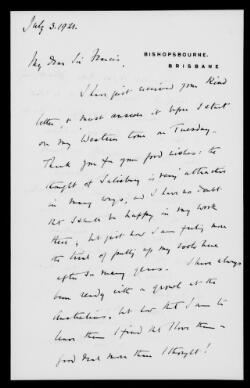 July 3. 1921.
BISHOPSBOURNE.
BRISBANE
My dear Sir Francis,
I have just received your kind
letter, & must answer it before I start
on my Western tour on Tuesday.
Thank you for your good wishes: the
thought of Salisbury is very attractive
in many ways, and I have no doubt
that I shall be happy in my work
there, but just now I am feeling more
the trial of pulling up my roots here
after so many years. I have always
been ready with a growl at the
Australians, but now that I am to
leave them I find that I love them a
good deal more than I thought!